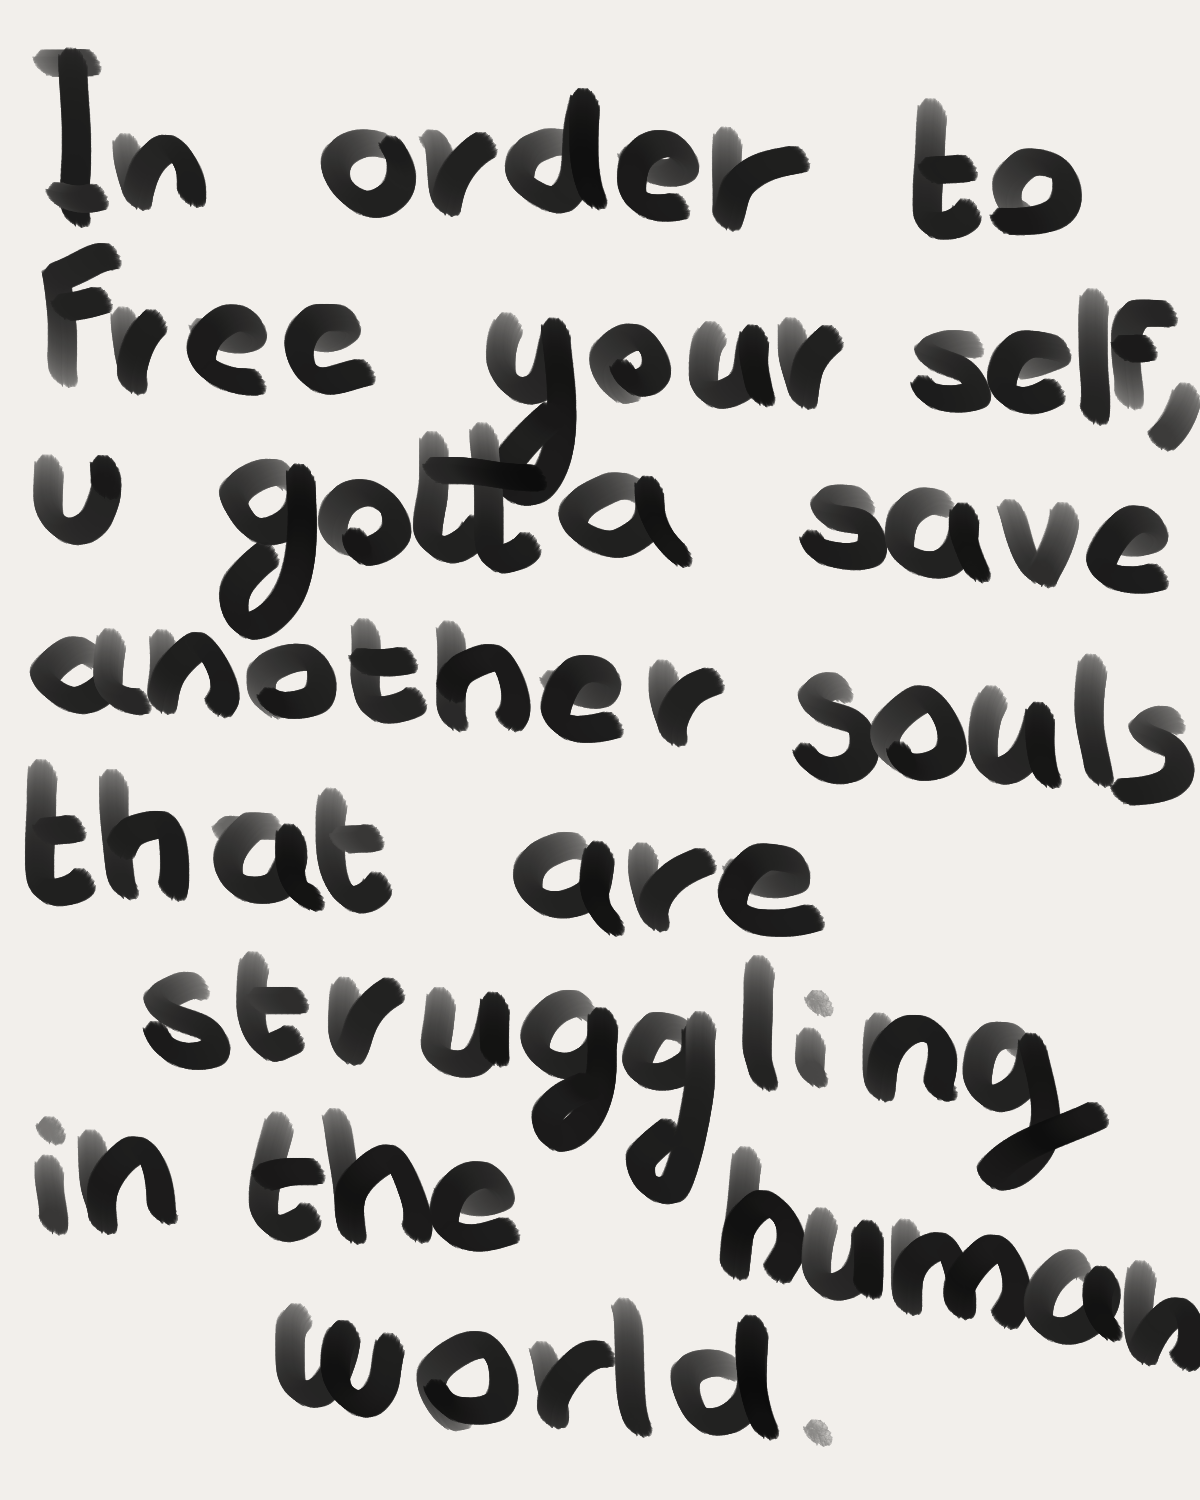 In order to
Free your self,
u gotta save
another souls
that are
struggling
in the human
world.